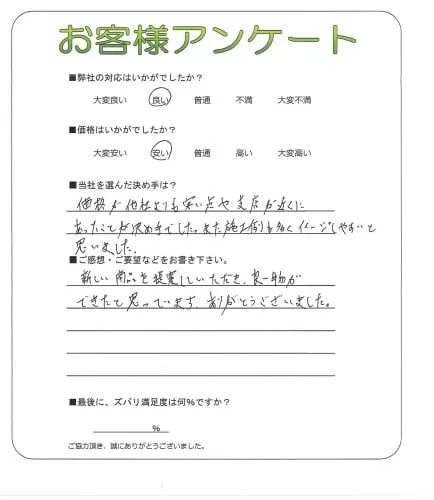 お客様アンケート
■弊社の対応はいかがでしたか？
大変良い 良い 普通 不満 大変不満
■価格はいかがでしたか？
大変安い 安い 普通 高い 大変高い
■当社を選んだ決め手は？
価格が他社よりも安い点や支店が近くに
あったことが決め手でした。また施工例も多くイメージしやすいと
思いました。
■ご感想・ご要望などをお書き下さい。
新しい商品を提案していただき、良い物が
できたと思っています。ありがとうございました。
■最後に、ズバリ満足度は何％ですか？
％
ご協力頂き、誠にありがとうございました。